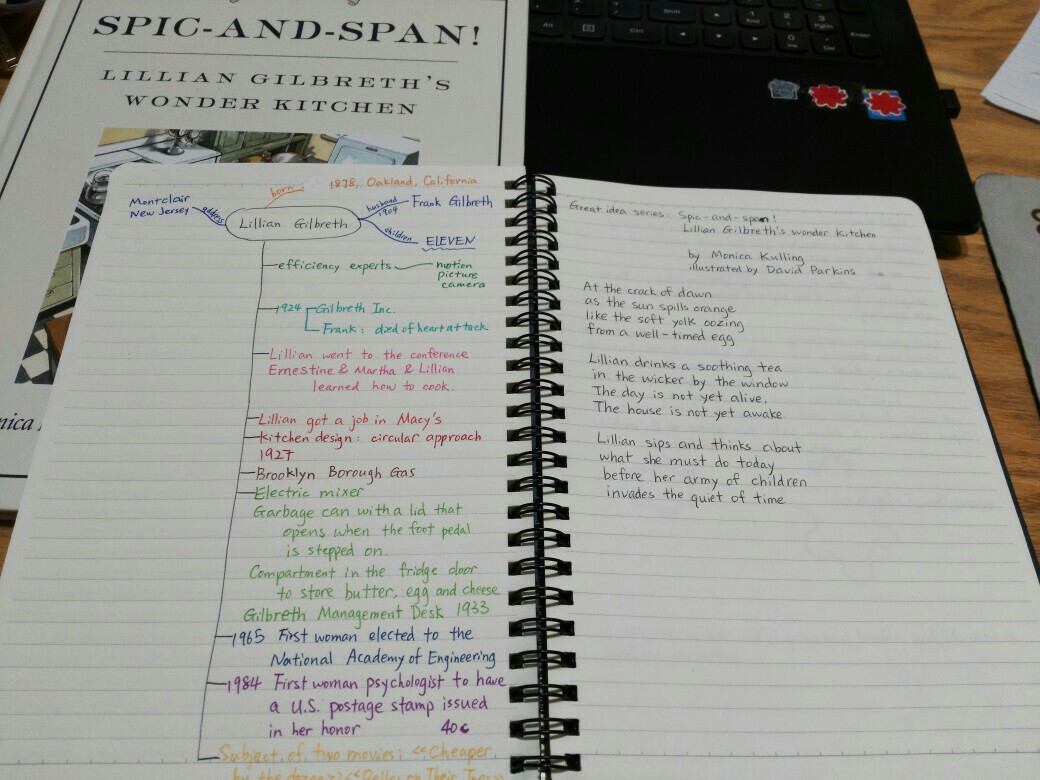 SPIC-AND-SPAN!
LILLIAN GILBRETH'S
WONDER KITCHEN
Shift
End
PgDn
Alt
Ctrl
Ins
Del
Enter
born 1878, Oakland, California
Montclair
New Jersey address
Lillian Gilbreth
husband 1904 Frank Gilbreth
children ELEVEN
efficiency experts motion
picture
camera
1924 Gilbreth Inc.
Frank: died of heart attack
Lillian went to the conference
Ernestine & Martha & Lillian
learned how to cook.
Lillian got a job in Macy's
kitchen design: circular approach
1927
Brooklyn Borough Gas
Electric mixer
Garbage can with a lid that
opens when the foot pedal
is stepped on.
Compartment in the fridge door
to store butter, egg and cheese
Gilbreth Management Desk 1933
1965 First woman elected to the
National Academy of Engineering
1984 First woman psychologist to have
a U.S. postage stamp issued
in her honor 40¢
Subject of two movies: <<Cheaper
by the dozen>> <<Belles on Their Toes>>
Great idea series: Spic-and-span!
Lillian Gilbreth's wonder Kitchen
by Monica Kulling
illustrated by David Parkins
At the crack of dawn
as the sun spills orange
like the soft yolk oozing
from a well-timed egg
Lillian drinks a soothing tea
in the wicker by the window
The day is not yet alive.
The house is not yet awake
Lillian sips and thinks about
what she must do today
before her army of children
invades the quiet of time